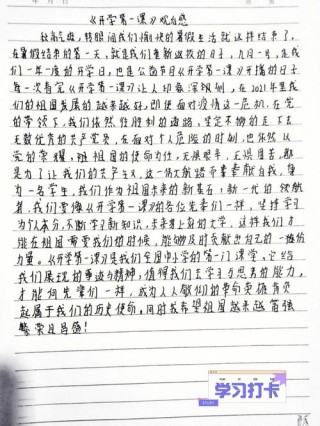 《开学第一课》观后感
秋高气爽,转眼间我们愉快的暑假生活就这样结束了,
在暑假结束的第一天,就是我们重新返校的日子,九月一号,是我
们一年一度的开学日,也是公益节目《开学第一课》开播的日子
每一次看完《开学第一课》让人印象深刻,在2021年里我
们的祖国发展的越来越好,即使面对疫情这一危机,在党
的带领下,我们依然在胜利的道路,坚定不够的走下去
无数优秀的共产党员,在面对个人危险的时刻,也依然以
党的荣耀,班祖国的使命为任,无畏艰辛,无惧困苦,都
是为了让我们的共产主义,这一伟大航路
一名学生,我们作为祖国未来的新基石,新一代的领航
者,我们要像《开学第一课》的各位先辈们一样,坚持学习
为个人本分,不断学习新知识,未来考上好的大学,这样我们才
能在祖国需要我们的时候,能够及时贡献出自己的一份份
力量。《开学第一课》是我们全国中小学的第一门课堂,它给
我们展现的事迹与精神,值得我们去学习与思考的能力,
才能向先辈们一样,成为人人敬仰的革命英雄肩负
起属于我们的历史使命,同时我希望祖国越来越富强
繁荣且昌盛!
学习打卡